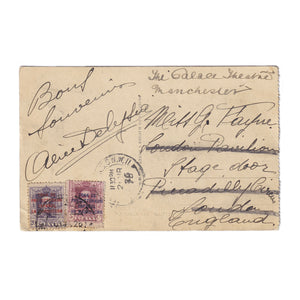 Bons
Souvenirs
Alice
The Palace Theatre
Manchester
Miss G. Fayne
London Pavilion
Stage door
Piccadilly Circus
London
England